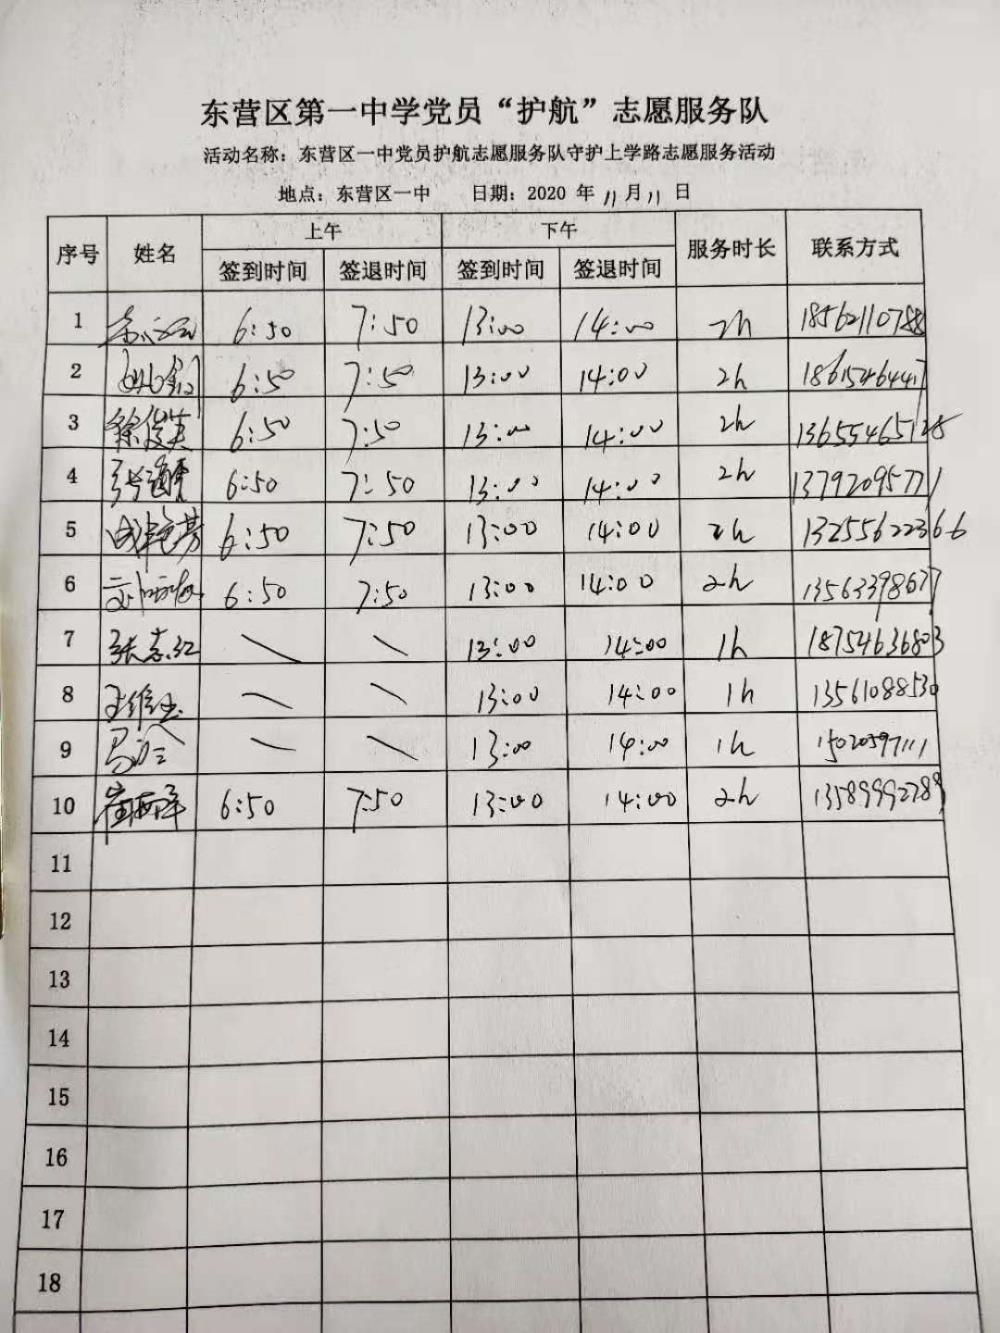 东营区第一中学党员“护航”志愿服务队
活动名称：东营区一中党员护航志愿服务队守护上学路志愿服务活动
地点：东营区一中 日期：2020 年 11 月 11 日
序号 姓名 上午 下午 服务时长 联系方式
签到时间 签退时间 签到时间 签退时间
1 6:50 7:50 13:00 14:00 2h 18562110788
2 6:50 7:50 13:00 14:00 2h 18615464417
3 徐俊英 6:50 7:50 13:00 14:00 2h
4 6:50 7:50 13:00 14:00 2h 13792095771
5 6:50 7:50 13:00 14:00 2h 13255622366
6 6:50 7:50 13:00 14:00 2h 13563398677
7 张志红 \ \ 13:00 14:00 1h 18754636803
8 \ \ 13:00 14:00 1h 13561088530
9 \ \ 13:00 14:00 1h 15020597111
10 崔海洋 6:50 7:50 13:00 14:00 2h 13589992789
11
12
13
14
15
16
17
18